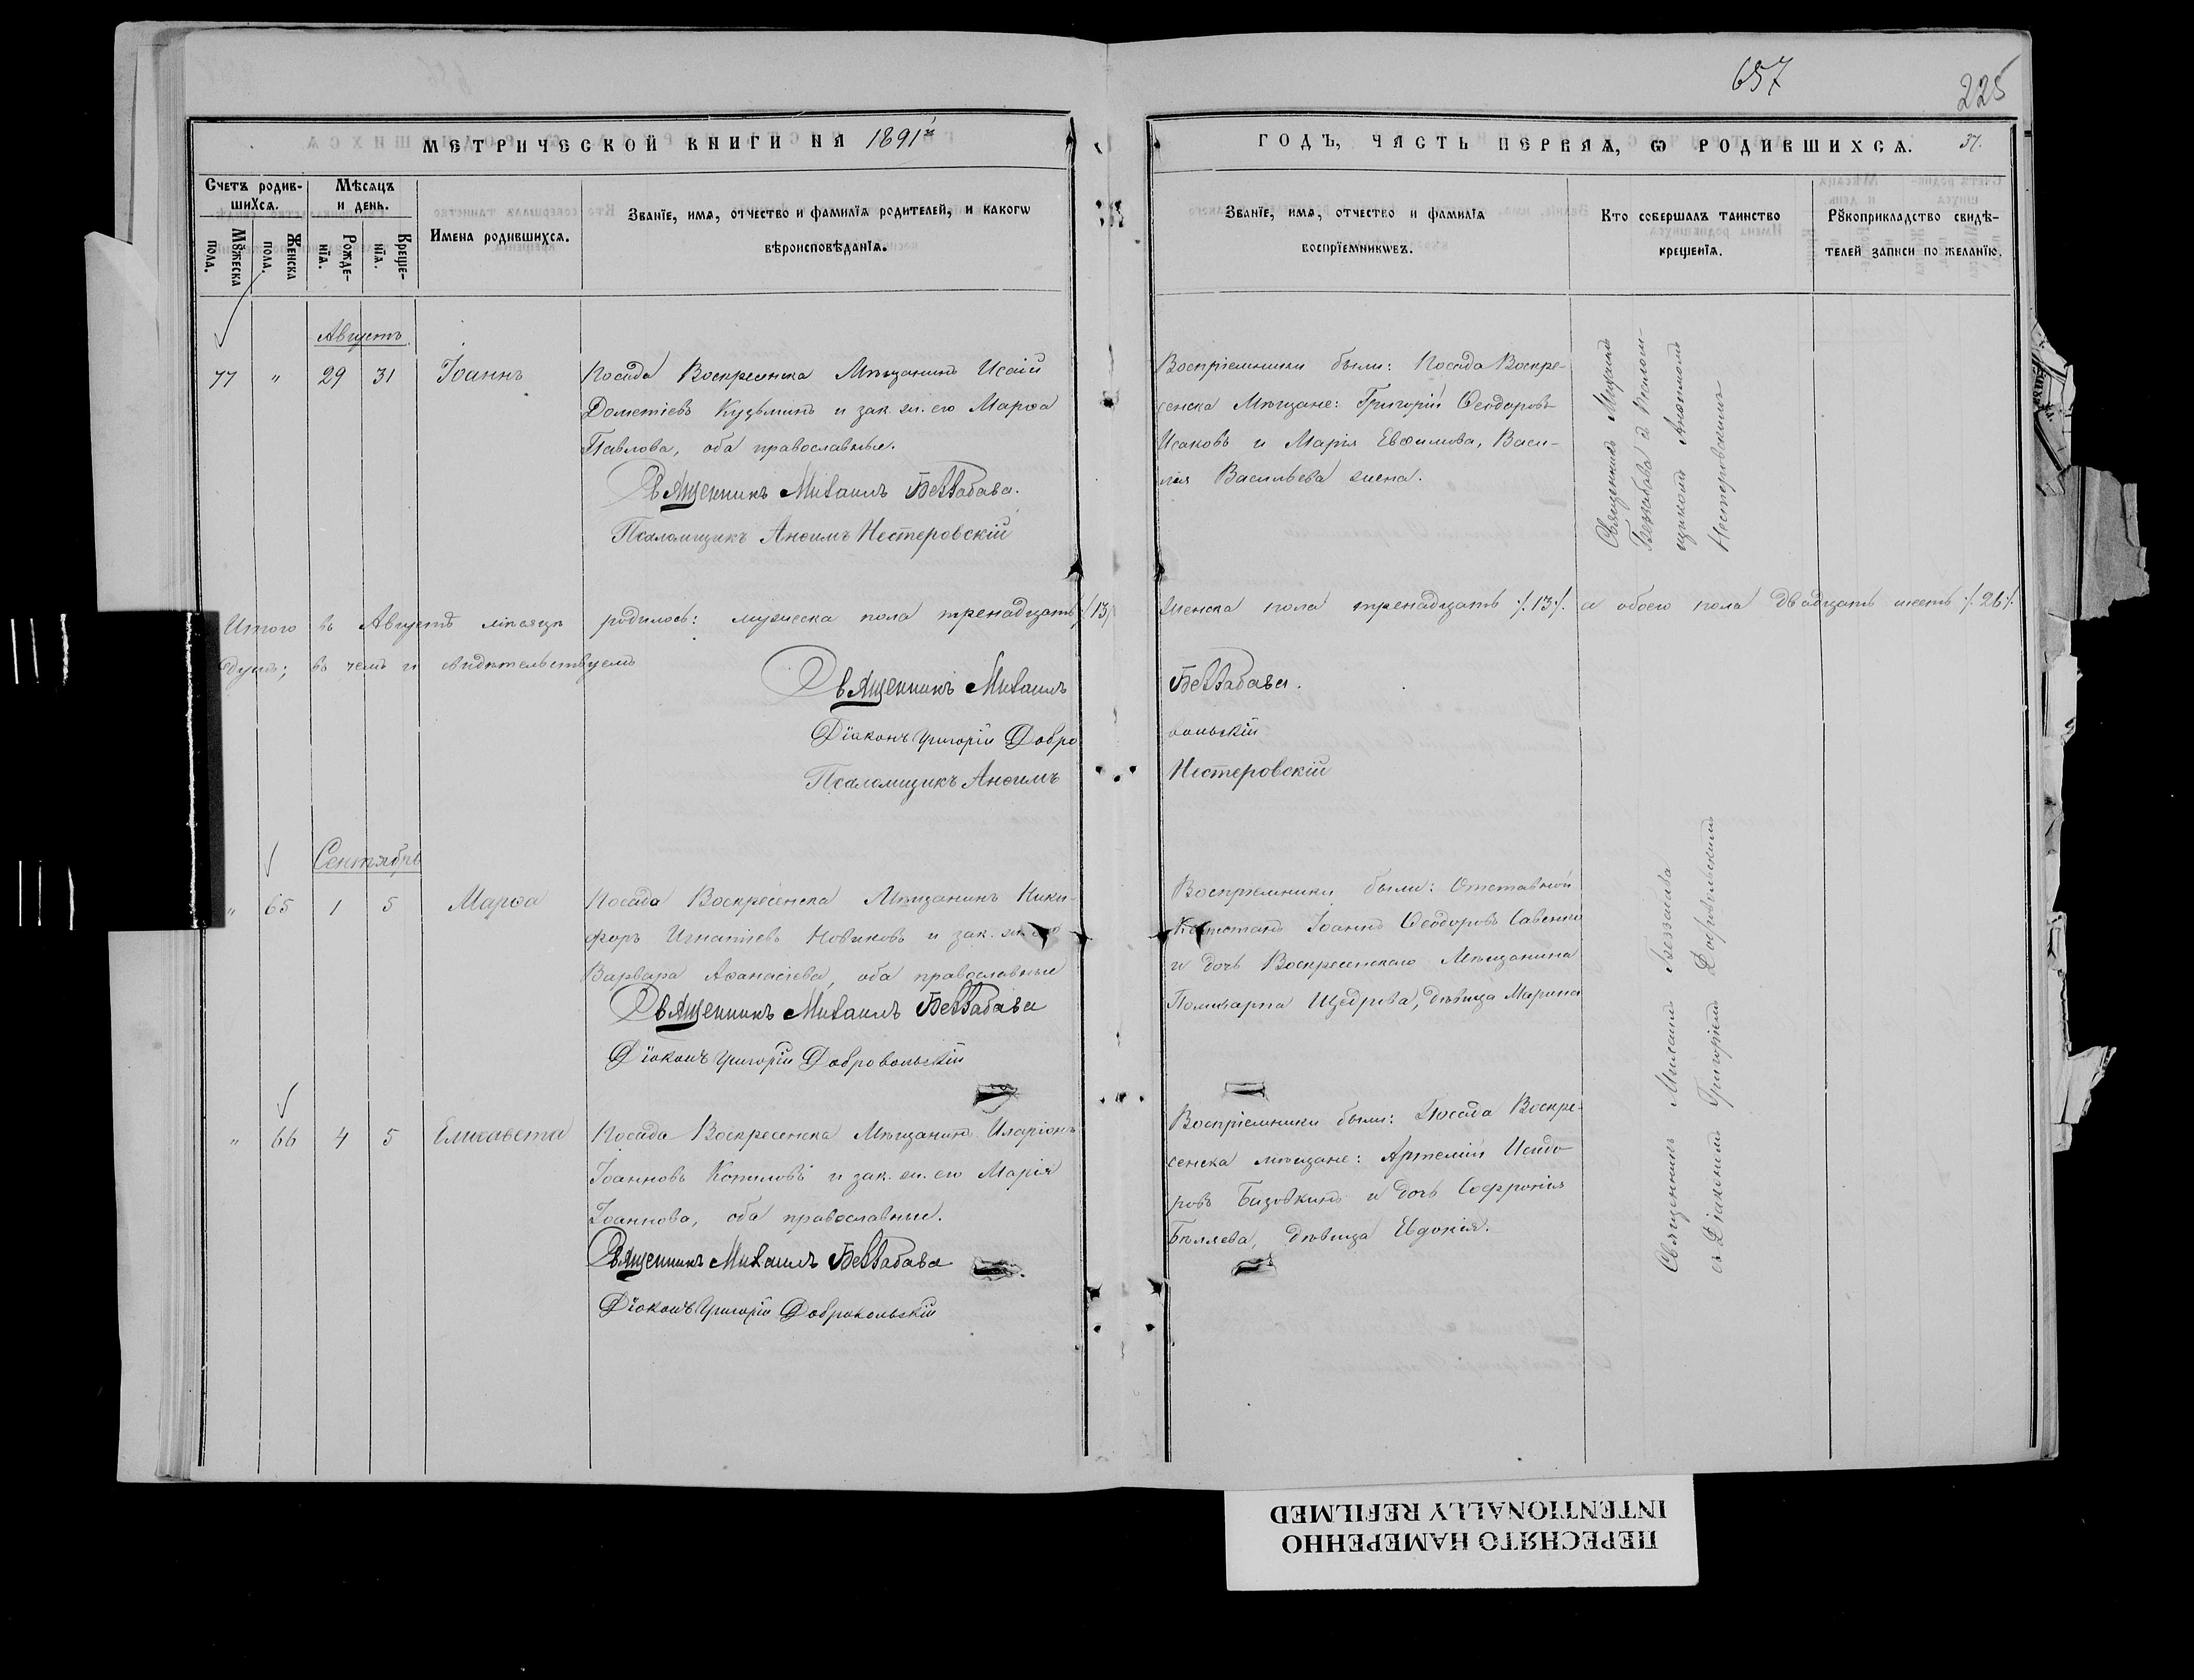 657
225
МЕТРИЧЕСКОЙ КНИГИ НА 1891й
ГОДЪ, ЧАСТЬ ПЕРВАЯ, Ѡ РОДИВШИХСѦ. 37.
Счетъ родив-
шихся.
Мѣсяцъ
и день.
Мꙋжеска
пола.
Женска
пола.
Рожде-
нїя.
Креще-
нїя.
Имена родившихся.
Званїе, имя, отчество и фамилїя родителей, и какогѡ
вѣроисповѣданїя.
Званїе, имя, отчество и фамилїя
воспрїемникѡвъ.
Кто совершалъ таинство
крещенїя.
Рꙋкоприкладство свидѣ-
телей записи по желанїю.
Августъ
77 " 29 31 Іоаннъ
Посада Воскресенска Мѣщанинъ Исаій
Дометіевъ Кузьминъ и зак. ж. его Марѳа
Павлова, оба православные.
Священникъ Михаилъ Беззабава.
Псаломщикъ Анѳимъ Нестеровскій
Воспріемники были: Посада Воскре-
сенска Мѣщане: Григорій Ѳеодоровъ
Исаковъ и Марія Евѳимова, Васи-
лія Васильева жена.
Священникъ Михаилъ
Беззабава съ Псалом-
щикомъ Анѳимомъ
Нестеровскимъ
Итого въ Августѣ мѣсяцѣ родилось: мужеска пола тренадцать ·/.13·/. женска пола тренадцать ·/.13·/. а обоего пола двадцать шесть ·/.26·/.
душъ; въ чемъ и свидѣтельствуемъ
Священникъ Михаилъ Беззабава.
Діаконъ Григорій Добровольскій
Псаломщикъ Анѳимъ Нестеровскій
Сентябрь
" 65 1 5 Марѳа
Посада Воскресенска Мѣщанинъ Ники-
форъ Игнатіевъ Новиковъ и зак. ж. его
Варвара Аѳанасіева, оба православные
Священникъ Михаилъ Беззабава
Діаконъ Григорій Добровольскій
Воспріемники были: Отставной
Іоаннъ Ѳеодоровъ Савенко
и дочь Воскресенскаго Мѣщанина
Поликарпа Щедрова, дѣвица Марина
" 66 4 5 Елисавета
Посада Воскресенска Мѣщанинъ Иларіонъ
Іоанновъ Копыловъ и зак. ж. его Марія
Іоаннова, оба православные.
Священникъ Михаилъ Беззабава
Діаконъ Григорій Добровольскій
Воспріемники были: Посада Воскре-
сенска мѣщане: Артемій Исидо-
ровъ Базовкинъ и дочь Софронія
Бѣляева, дѣвица Евдокія.
Священникъ Михаилъ Беззабава
съ Діакономъ Григоріемъ Добровольскимъ
ПЕРЕСНЯТО НАМЕРЕННО
INTENTIONALLY REFILMED